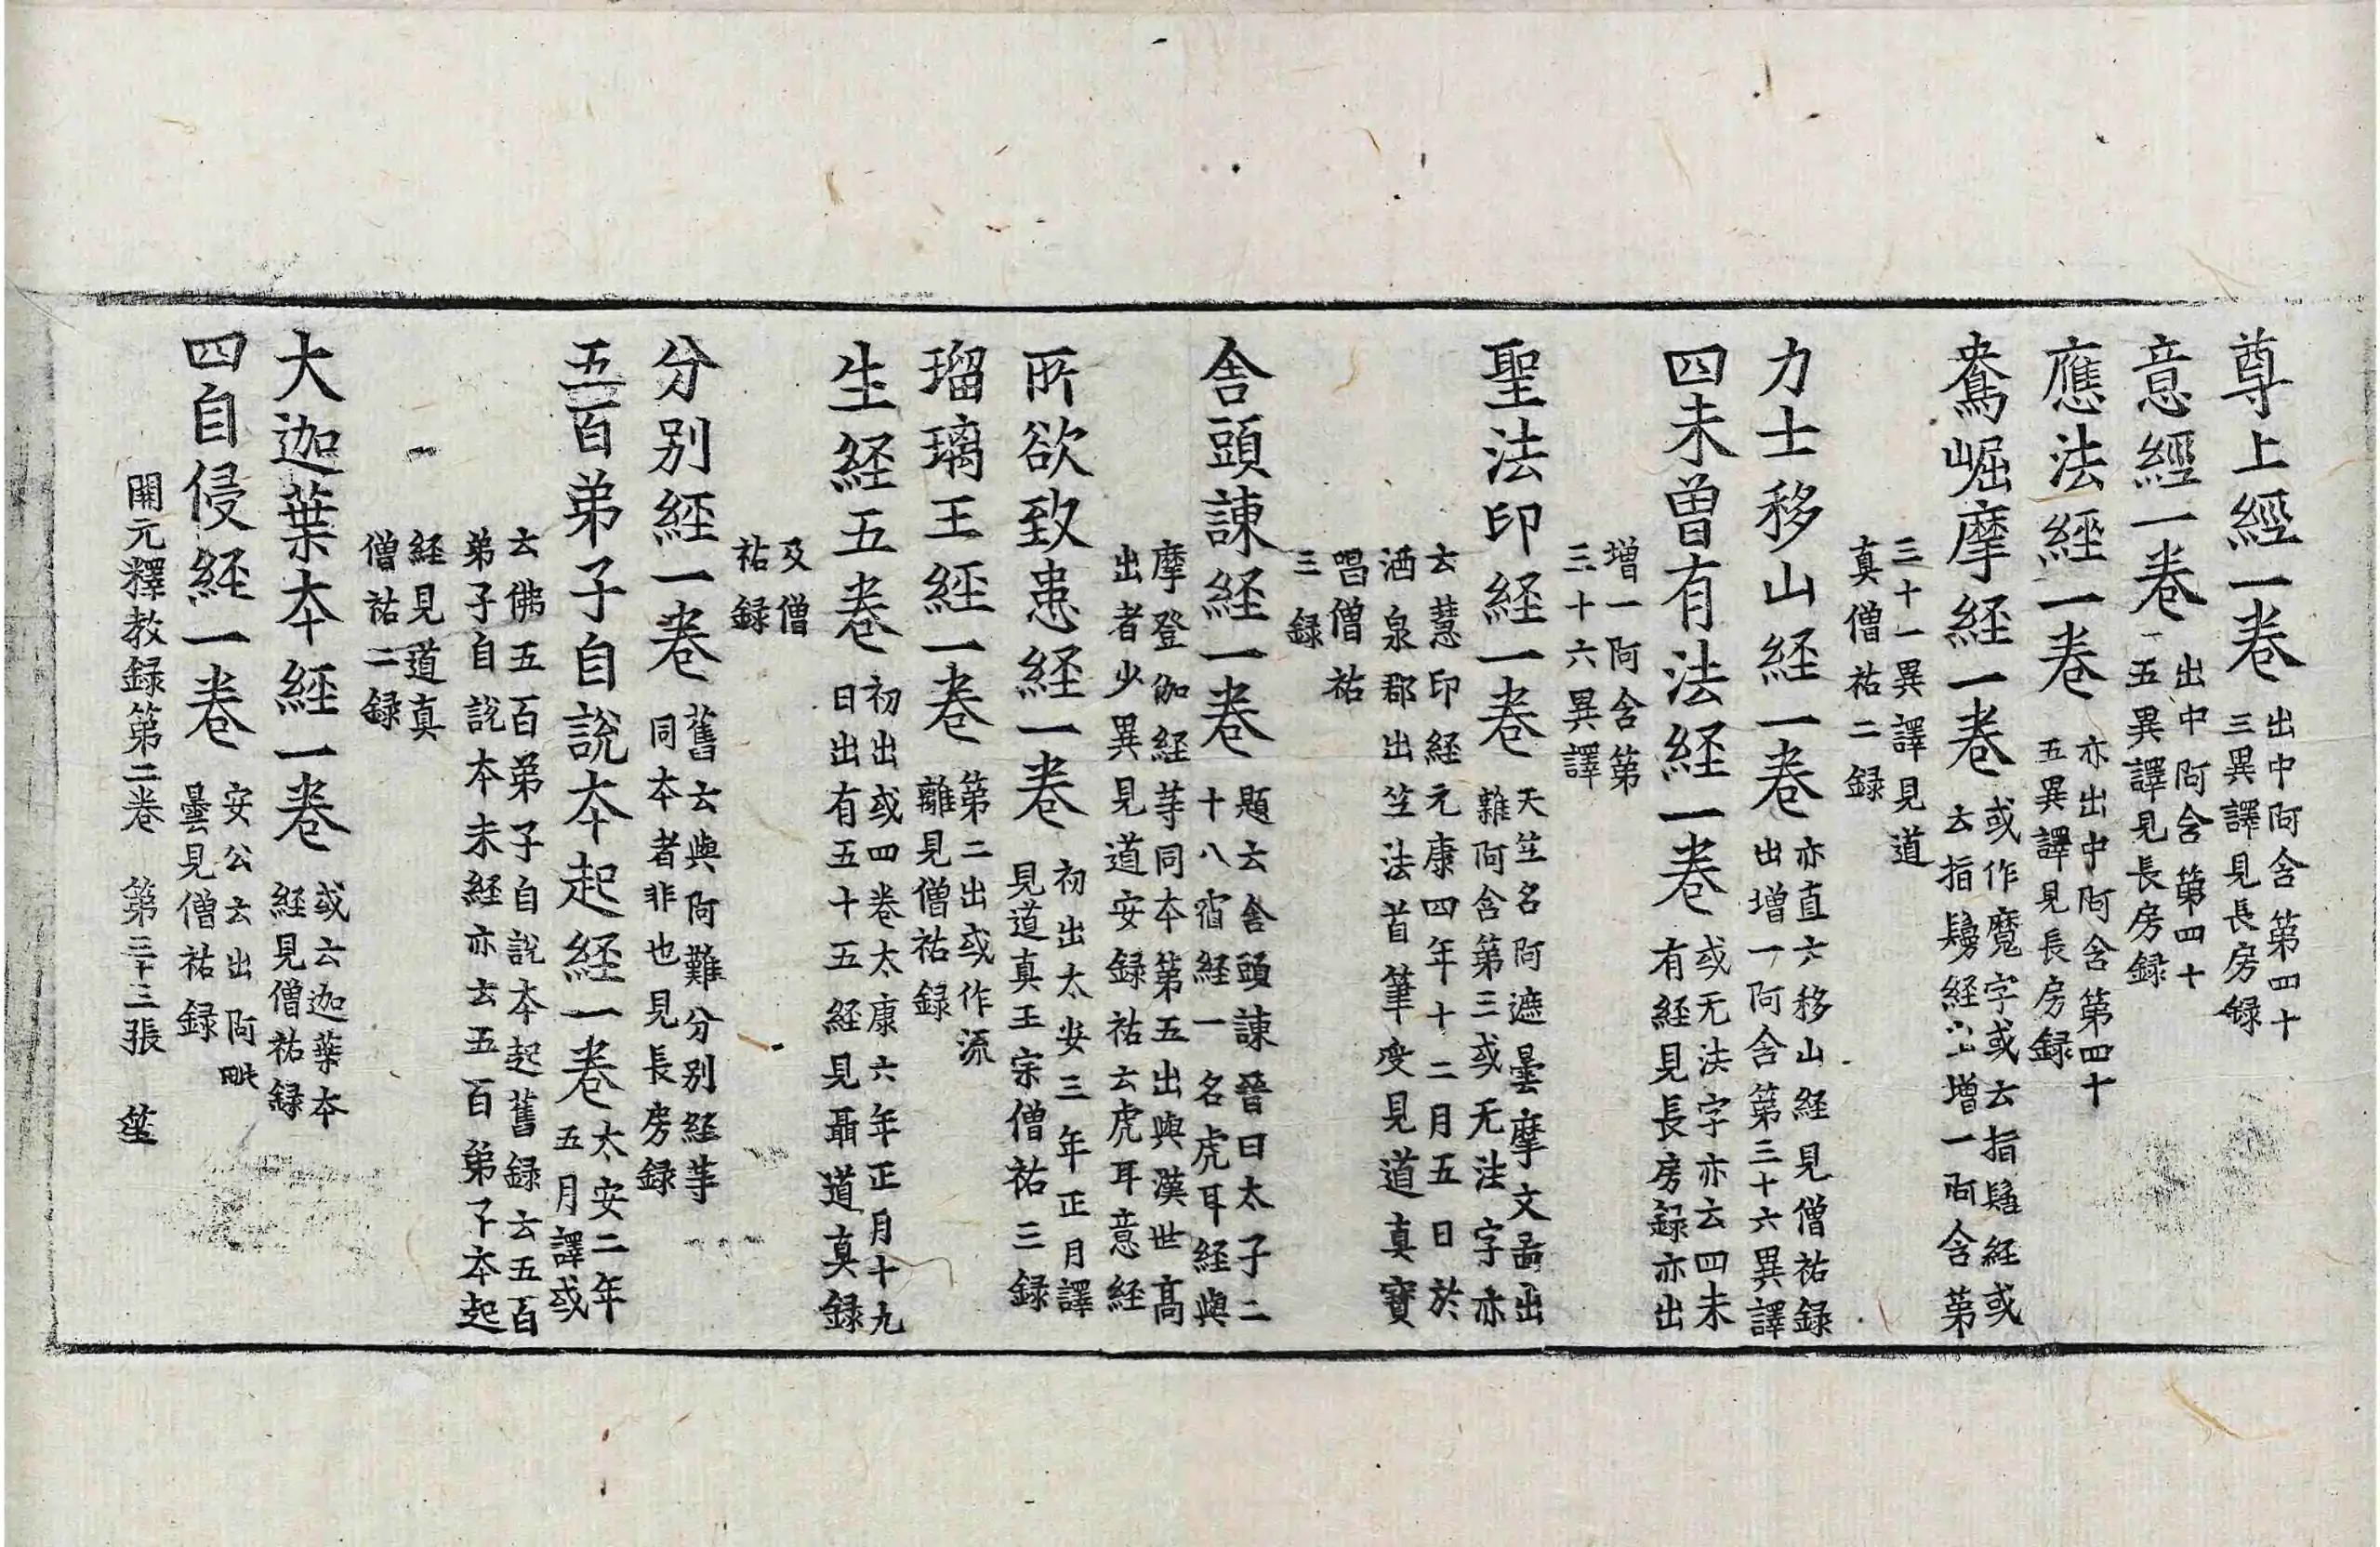 尊上經一卷 出中阿含第四十三異譯見長房録
意經一卷 出中阿含第四十五異譯見長房録
應法經一卷 亦出中阿含第四十五異譯見長房録
鴦崛摩經一卷 或作魔字或云指髻經或云指鬘経出增一阿含第
三十一異譯見道真僧祐二録
力士移山経一卷 亦直云移山経見僧祐録出增一阿含第三十六異譯
四未曾有法経一卷 或无法字亦云四未有経見長房録亦出
增一阿含第三十六異譯
聖法印経一卷 天竺名阿遮曇摩文啚出雜阿含第三或无法字亦
云慧印経元康四年十二月五日於酒泉郡出竺法首筆受見道真寶
唱僧祐三録
舎頭諫経一卷 題云舎頭諫晉曰太子二十八宿経一名虎耳経與
摩登伽経等同本第五出與漢世髙出者少異見道安録祐云虎耳意経
所欲致患経一卷 初出太安三年正月譯見道真王宗僧祐三録
瑠璃王經一卷 第二出或作流離見僧祐録
生経五卷 初出或四卷太康六年正月十九日出有五十五経見聶道真録
及僧祐録
分别經一卷 舊云與阿難分别経等同本者非也見長房録
五百弟子自說夲起経一卷 太安二年五月譯或
云佛五百弟子自說夲起舊録云五百弟子自說夲末経亦云五百弟子夲起
経見道真僧祐二録
大迦葉夲經一卷 或云迦葉夲経見僧祐録
四自侵経一卷 安公云出阿毗曇見僧祐録
開元釋教録第二卷 第三十三張 笙